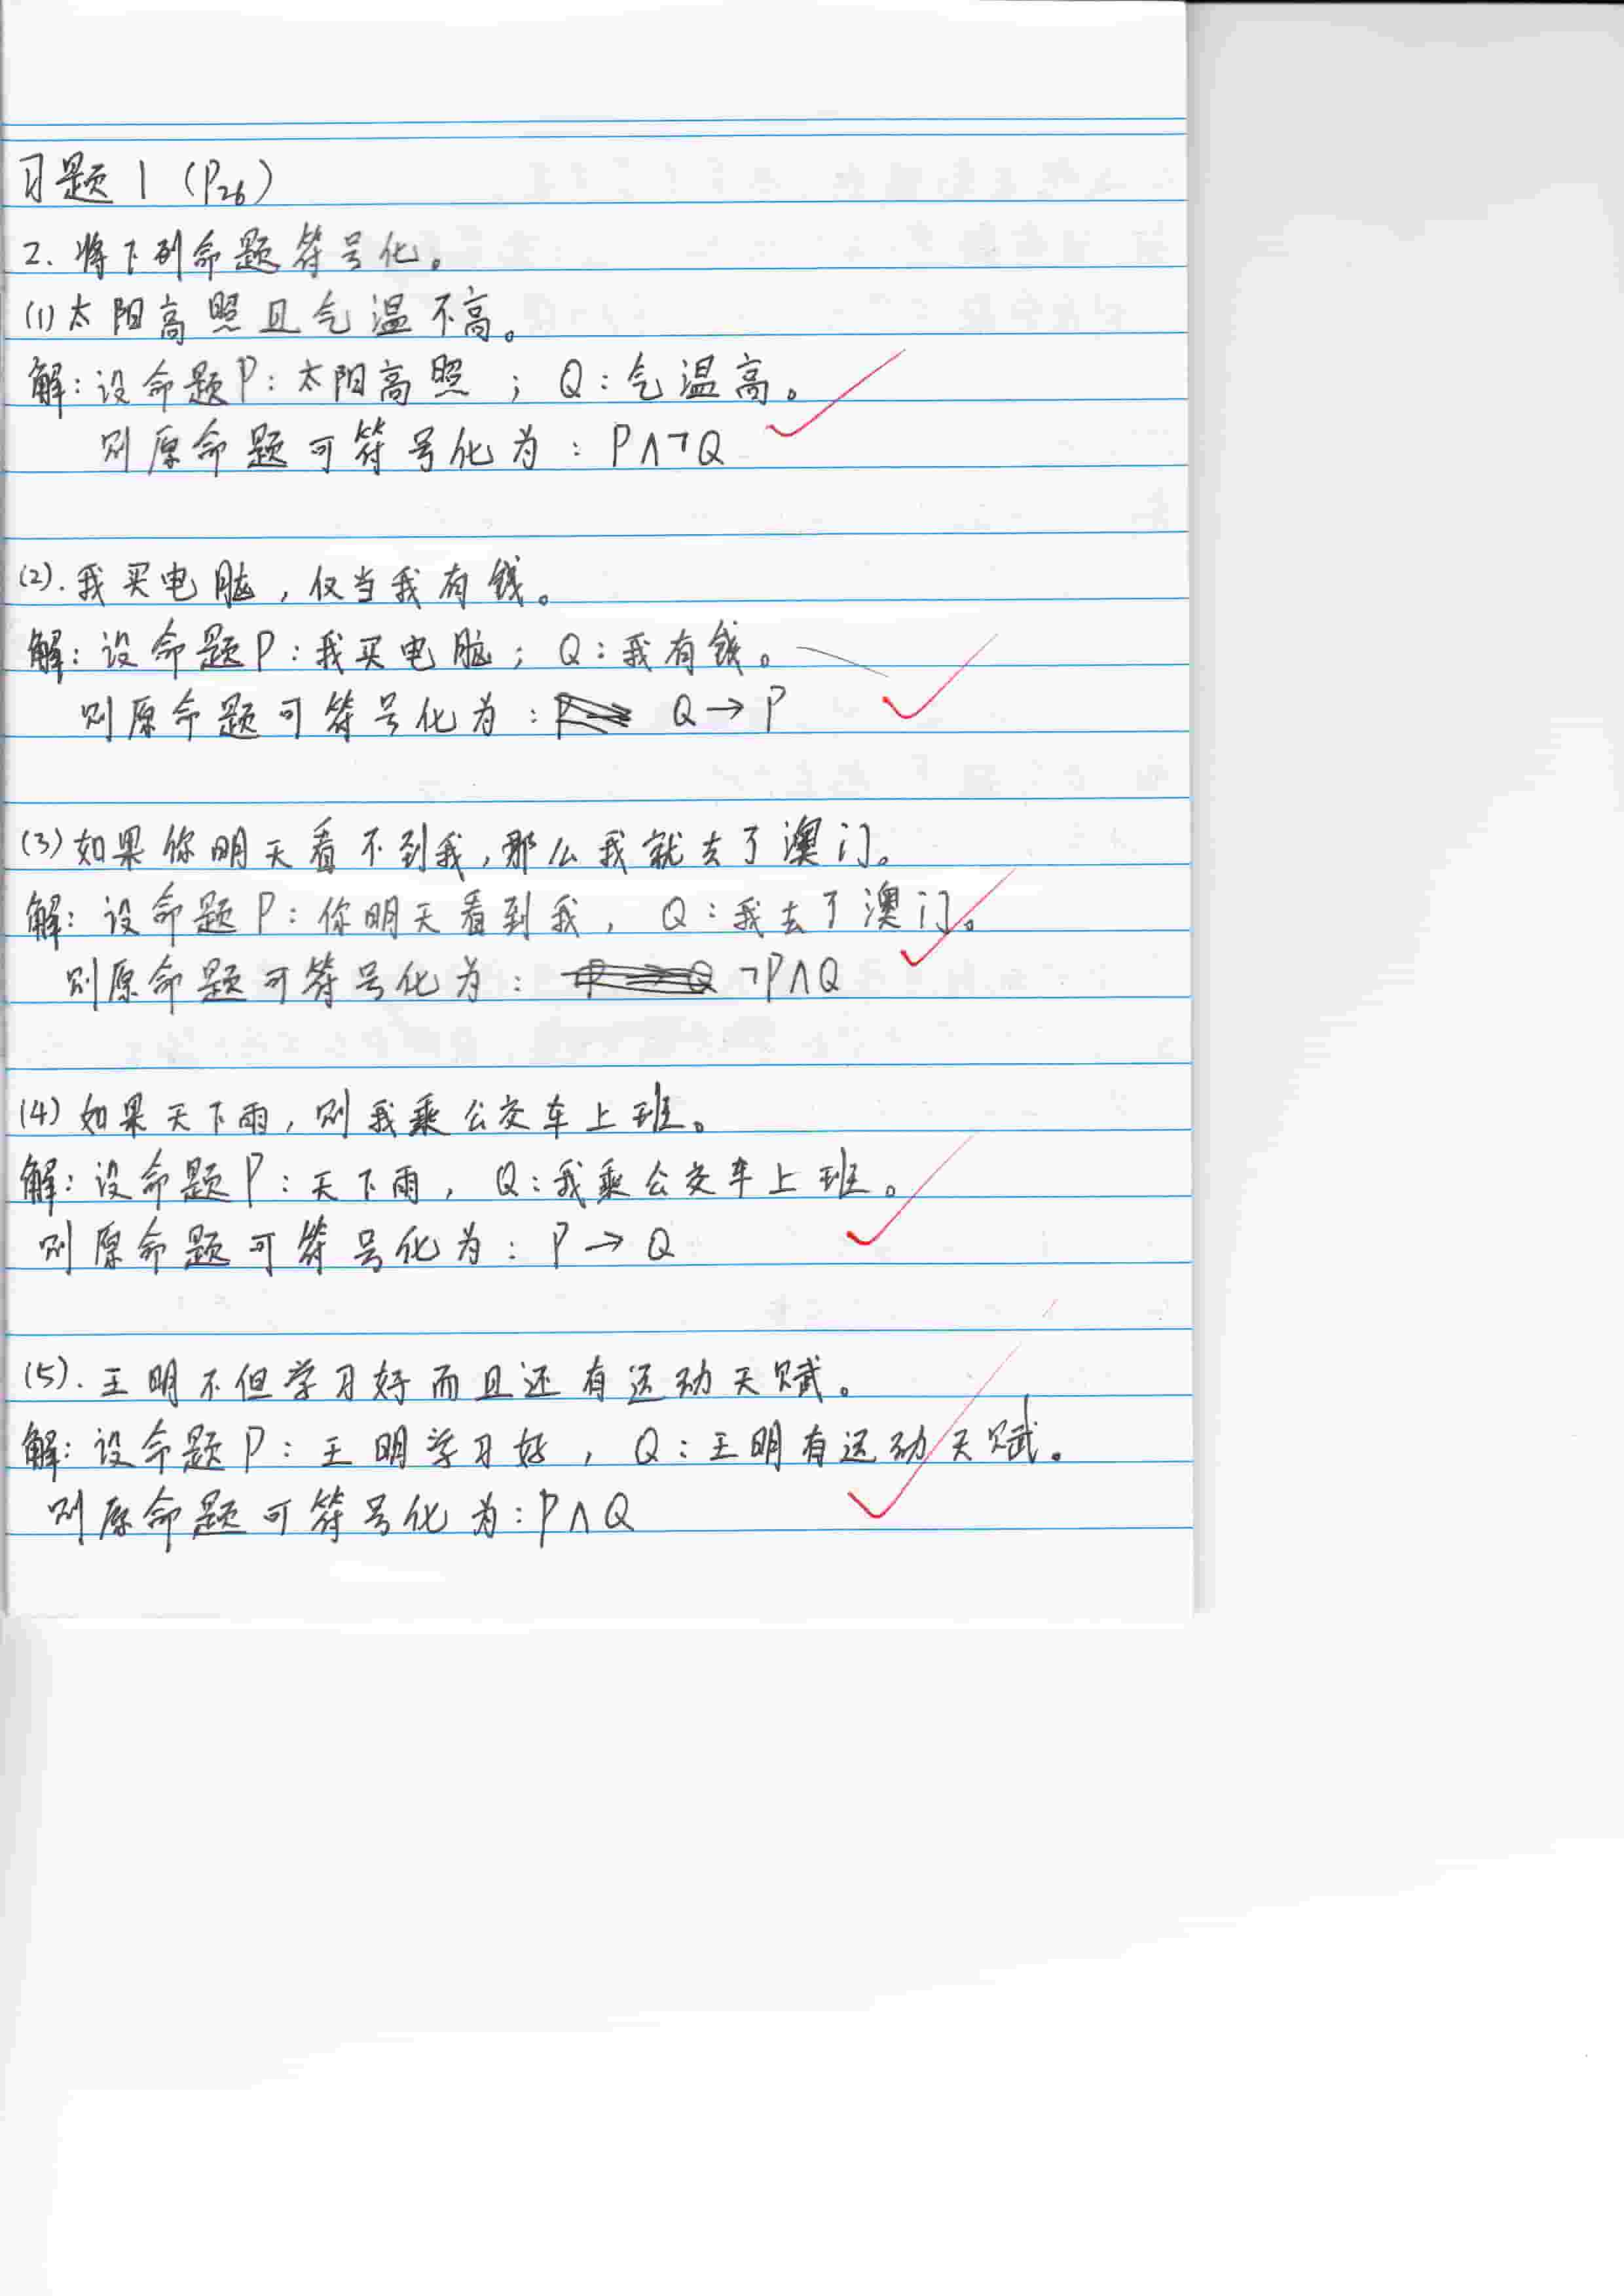 习题1 (P26)
2. 将下列命题符号化。
(1) 太阳高照且气温不高。
解:设命题P:太阳高照;Q:气温高。
则原命题可符号化为:P∧¬Q
(2). 我买电脑,仅当我有钱。
解:设命题P:我买电脑;Q:我有钱。
则原命题可符号化为: Q→P
(3) 如果你明天看不到我,那么我就去了澳门。
解:设命题P:你明天看到我, Q:我去了澳门。
则原命题可符号化为: ¬P∧Q
(4) 如果天下雨,则我乘公交车上班。
解:设命题P:天下雨, Q:我乘公交车上班。
则原命题可符号化为:P→Q
(5). 王明不但学习好而且还有运动天赋。
解:设命题P:王明学习好, Q:王明有运动天赋。
则原命题可符号化为:P∧Q